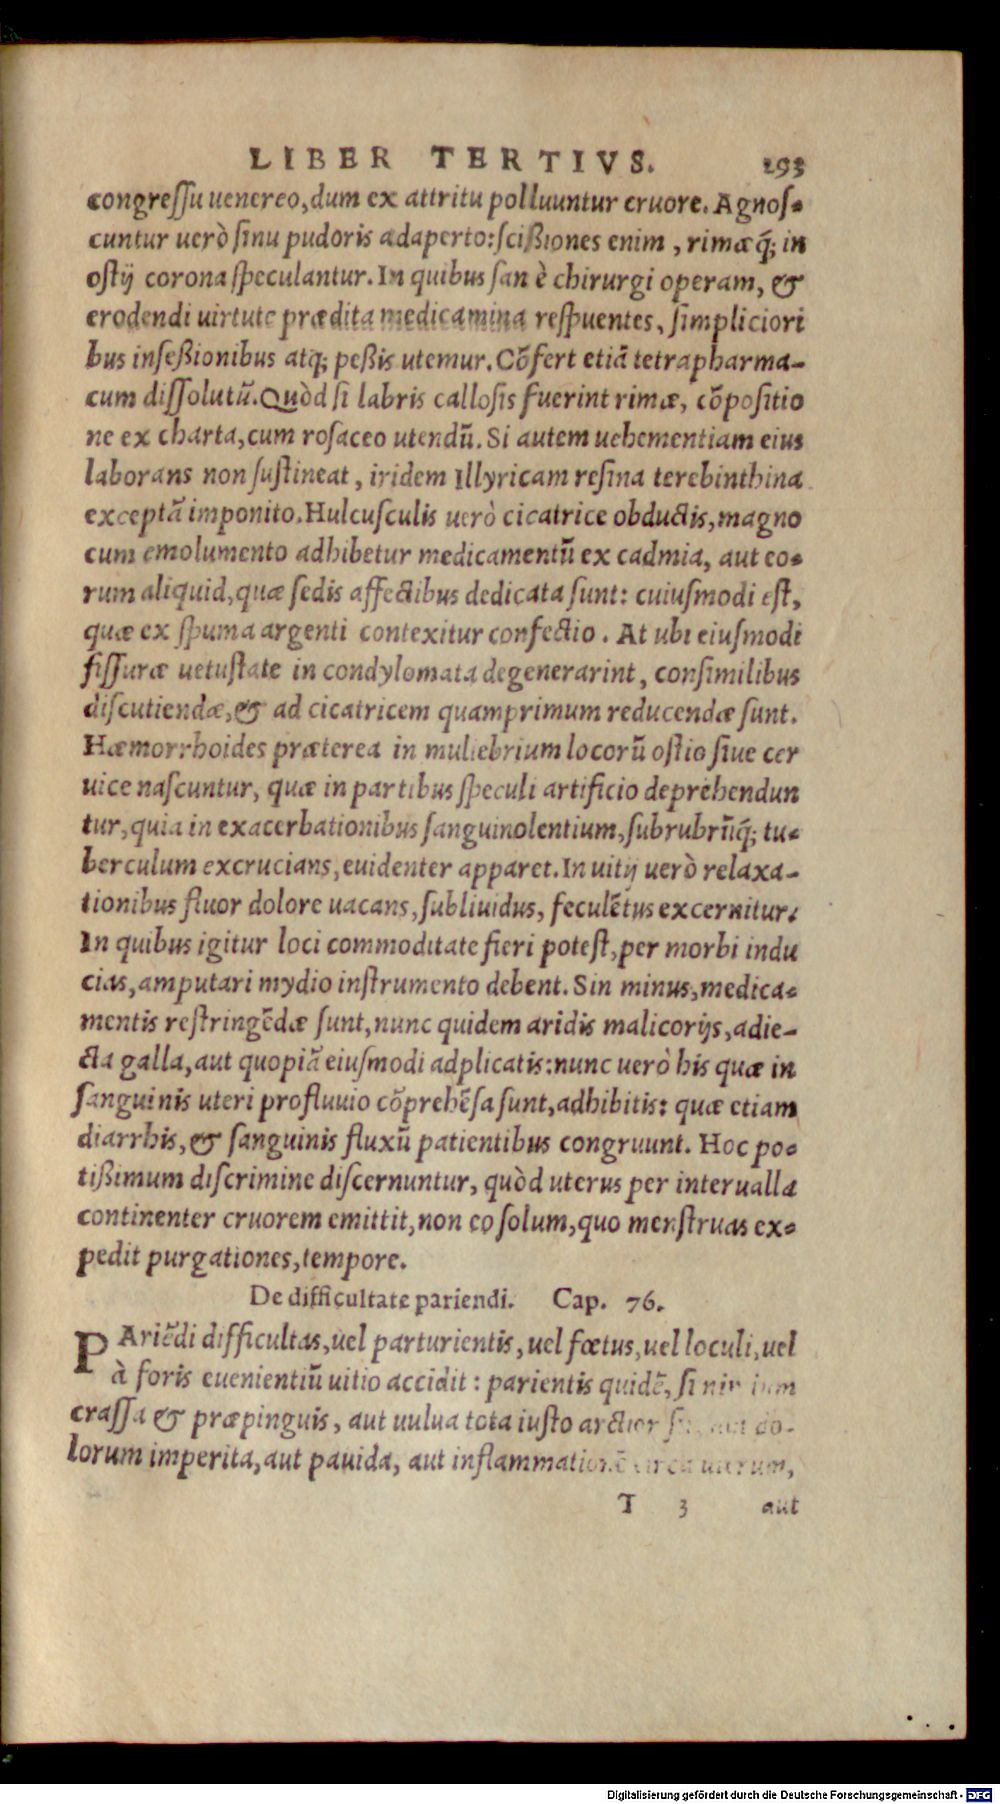 LIBER TERTIVS. 293
congreſſu uenereo, dum ex attritu polluuntur cruore. Agnoſ-
cuntur uerò ſinu pudoris adaperto: ſcißiones enim, rimæq́; in
oſtij corona ſpeculantur. In quibus ſanè chirurgi operam, &
erodendi uirtute prædita medicamina reſpuentes, ſimpliciori
bus inſeßionibus atq; peßis utemur. Cõfert etiã tetrapharma-
cum diſſolutũ. Quòd ſi labris calloſis fuerint rimæ, cõpoſitio
ne ex charta, cum roſaceo utendũ. Si autem uehementiam eius
laborans non ſuſtineat, iridem Illyricam reſina terebinthina
exceptã imponito. Hulcuſculis uerò cicatrice obductis, magno
cum emolumento adhibetur medicamentũ ex cadmia, aut eo-
rum aliquid, quæ ſedis affectibus dedicata ſunt: cuiuſmodi eſt,
quæ ex ſpuma argenti contexitur confectio. At ubi eiuſmodi
fiſſuræ uetuſtate in condylomata degenerarint, conſimilibus
diſcutiendæ, & ad cicatricem quamprimum reducendæ ſunt.
Hæmorrhoides præterea in muliebrium locorũ oſtio ſiue cer
uice naſcuntur, quæ in partibus ſpeculi artificio deprehendun
tur, quia in exacerbationibus ſanguinolentium, ſubrubrũq́; tu-
berculum excrucians, euidenter apparet. In uitij uerò relaxa-
tionibus fluor dolore uacans, ſubliuidus, feculẽtus excernitur.
In quibus igitur loci commoditate fieri poteſt, per morbi indu
cias, amputari mydio inſtrumento debent. Sin minus, medica-
mentis reſtringẽdæ ſunt, nunc quidem aridis malicorijs, adie-
cta galla, aut quopiã eiuſmodi adplicatis: nunc uerò his quæ in
ſanguinis uteri profluuio cõprehẽſa ſunt, adhibitis: quæ etiam
diarrhis, & ſanguinis fluxũ patientibus congruunt. Hoc po-
tißimum diſcrimine diſcernuntur, quòd uterus per interualla
continenter cruorem emittit, non eo ſolum, quo menſtruas ex-
pedit purgationes, tempore.
De difficultate pariendi. Cap. 76.
PAriẽdi difficultas, uel parturientis, uel fœtus, uel loculi, uel
à foris euenientiũ uitio accidit: parientis quidẽ, ſi
craſſa & præpinguis, aut uulua tota iuſto arctior do-
lorum imperita, aut pauida, aut inflammationẽ circa uterum,
T 3 aut
Digitalisierung gefördert durch die Deutsche Forschungsgemeinschaft - DFG